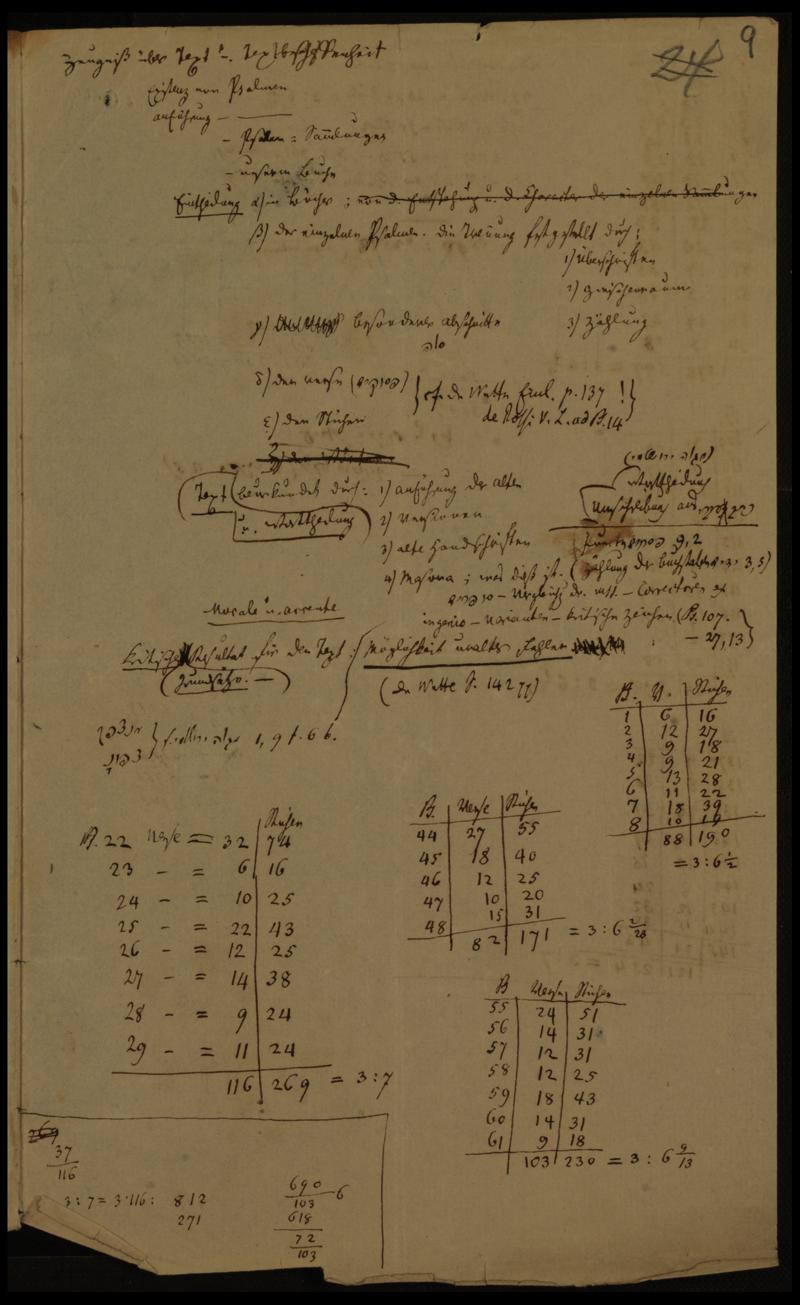 9
24
Zeugniß über Text u. Textbeschaffenheit
Existenz von Psalmen
Anführung — ———
— Psalm = Sammlungen
— unserm Buche
Eintheilung α) in Bücher ; von d. Entstehung u. d. Charakter der einzelnen Sammlungen
β) der einzelnen Psalmen. Die Trennung festgestellt durch:
1) Überschriften
2) Zwischenraum
γ) besonderer Abschnitte
3) Zählung
סלה
δ) den Verse (פסוקים)
cf. de Wette Einl. p. 137 !
ε) den Stichen
de Rossi V. L. ad Ps. 14
Text beurkundet durch: 1) Anführung der Alten
u. Worttheilung
2) Versionen
3) alte Handschriften
4) Masora ; was dieß ist. (Zählung der Buchstaben 3, 5)
Worttheilung
Vergleich. der Mss. — Correcturen ex
ingenio — Varianten — kritische Zeichen (Ps. 107.
— 27, 13)
Vocale u. Accente
Kritisches Resultat für den Text : Möglichkeit uralter Fehler
(Grundsätze. —)
(de Wette S. 142 ff)
1, 9 f. 66.
B. V. Stichen
1 6 16
2 12 27
3 9 18
4 9 21
5 13 28
6 11 22
7 18 39
8 10 19
88 190
= 3:6½
B. Verse Stichen
44 27 55
45 18 40
46 12 25
47 10 20
48 15 31
82 171 = 3:6 2/28
Stichen
Ps. 22 Verse = 32 74
23 — = 6 16
24 — = 10 25
25 — = 22 43
26 — = 12 25
27 — = 14 38
28 — = 9 24
29 — = 11 24
116 269 = 3:7
B Verse Stichen
55 24 51
56 14 31
57 12 31
58 12 25
59 18 43
60 14 31
61 9 18
103 230 = 3 : 6 9/13
269
37
116
3:7 = 3·116: 812
271
690
103 6
618
72
103